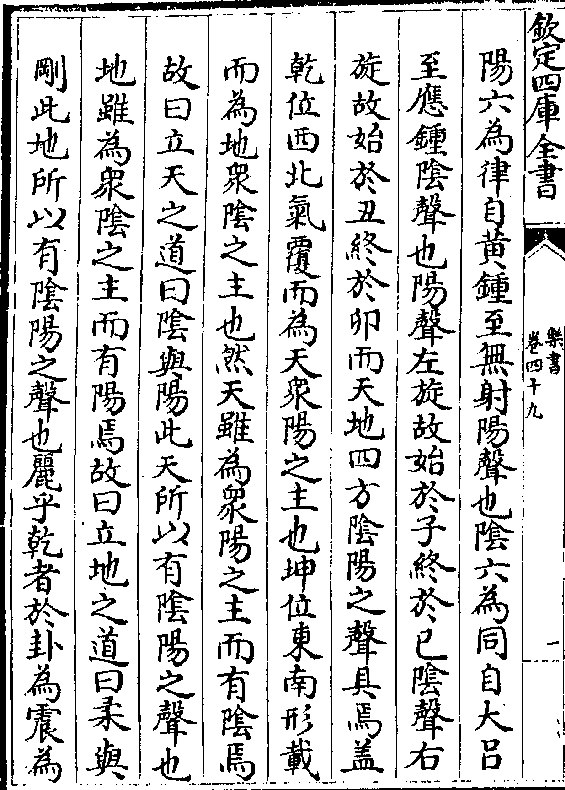 欽定四庫全書
樂書
卷四十九
一
陽六為律自黃鍾至無射陽聲也陰六為同自大呂
至應鍾陰聲也陽聲左旋故始於子終於巳陰聲右
旋故始於丑終於卯而天地四方陰陽之聲具焉盖
乾位西北氣覆而為天衆陽之主也坤位東南形載
而為地衆陰之主也然天雖為衆陽之主而有陰焉
故曰立天之道曰陰與陽此天所以有陰陽之聲也
地雖為衆陰之主而有陽焉故曰立地之道曰柔與
剛此地所以有陰陽之聲也麗乎乾者於卦為震為